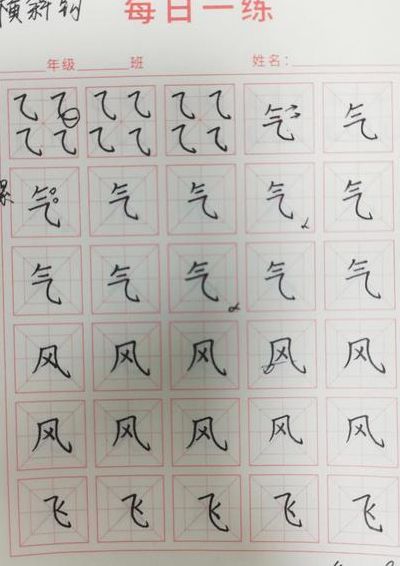 横斜钩
每日一练
年级 班 姓名：
气 气
气 气 气 气 气
气 气 气 气 气
风 风 风 风 风
风 风 风 风 风
飞 飞 飞 飞 飞